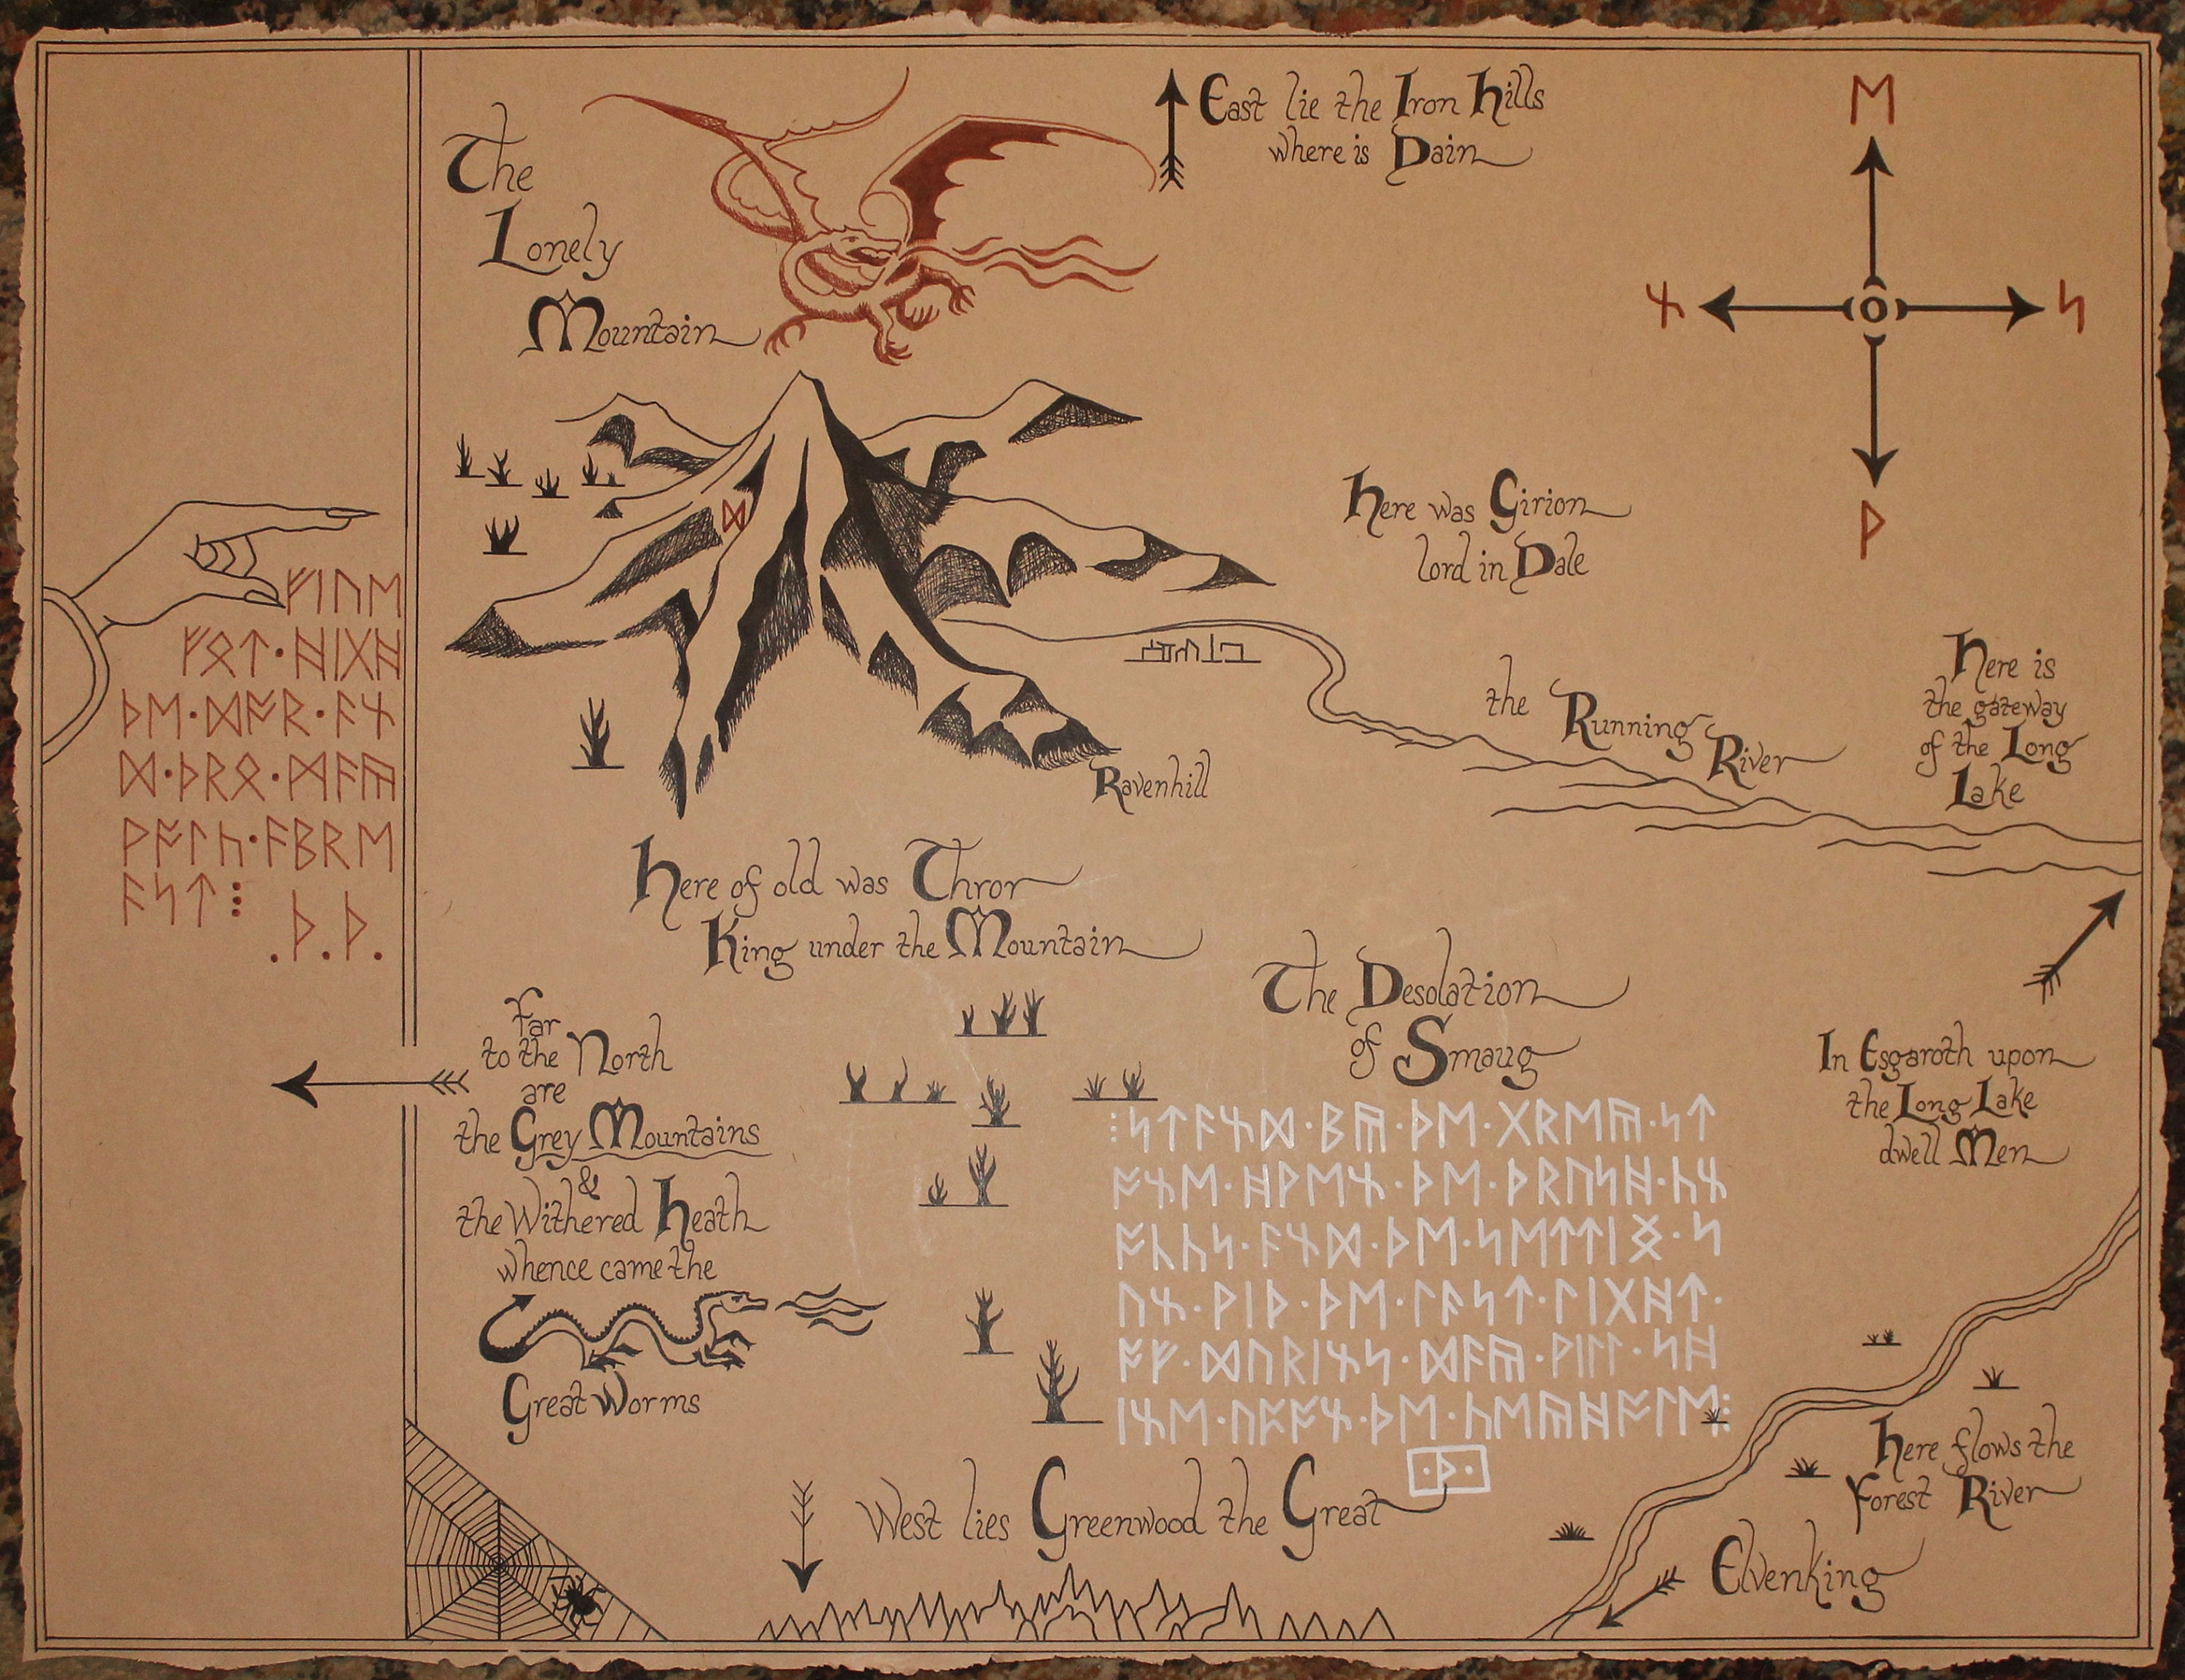 The
Lonely
Mountain
East lie the Iron Hills
where is Dain
ᛖ
ᚾ
ᛋ
ᚹ
ᛞ
Here was Girion
lord in Dale
ᚠᛁᚢᛖ
ᚠᛟᛏ᛫ᚻᛁᚷᚻ
ᚦᛖ᛫ᛞᚩᚱ᛫ᚫᚾ
ᛞ᛫ᚦᚱᛟ᛫ᛗᚫᚣ
ᚹᚩᛚᚳ᛫ᚫᛒᚱᛖ
ᚫᛋᛏ⁝
.ᚦ.ᚦ.
the Running River
Here is
the gateway
of the Long
Lake
Ravenhill
Here of old was Thror
King under the Mountain
The Desolation
of Smaug
Far
to the North
are
the Grey Mountains
&
the Withered Heath
whence came the
Great Worms
In Esgaroth upon
the Long Lake
dwell Men
⁝ᛋᛏᚫᚾᛞ᛫ᛒᚣ᛫ᚦᛖ᛫ᚷᚱᛖᚣ᛫ᛋᛏ
ᚩᚾᛖ᛫ᚻᚹᛖᚾ᛫ᚦᛖ᛫ᚦᚱᚢᛋᚻ᛫ᚳᚾ
ᚩᚳᚳᛋ᛫ᚫᚾᛞ᛫ᚦᛖ᛫ᛋᛖᛏᛏᛁᛝ᛫ᛋ
ᚢᚾ᛫ᚹᛁᚦ᛫ᚦᛖ᛫ᛚᚫᛋᛏ᛫ᛚᛁᚷᚻᛏ᛫
ᚩᚠ᛫ᛞᚢᚱᛁᚾᛋ᛫ᛞᚫᚣ᛫ᚹᛁᛚᛚ᛫ᛋᚻ
ᛁᚾᛖ᛫ᚢᛈᚩᚾ᛫ᚦᛖ᛫ᚳᛖᚣᚻᚩᛚᛖ⁝
᛫ᚦ᛫
Here flows the
Forest River
West lies Greenwood the Great
Elvenking